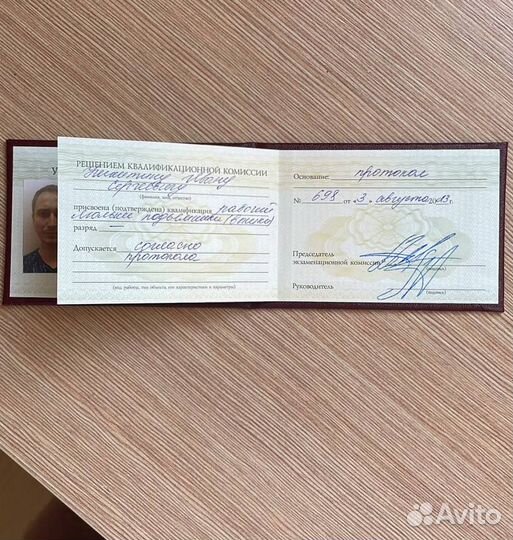 У
РЕШЕНИЕМ КВАЛИФИКАЦИОННОЙ КОМИССИИ
Никитину Ивану
Сергеевичу
(фамилия, имя, отчество)
присвоена (подтверждена) квалификация рабочий
люльки подъемника (вышки)
разряд —
Допускается согласно
протокола
(вид работы, тип объекта, его характеристики и параметры)
Основание: протокол
№ 698 от 3. августа 2013 г.
Председатель
экзаменационной комиссии
(подпись)
Руководитель
(подпись)
Avito